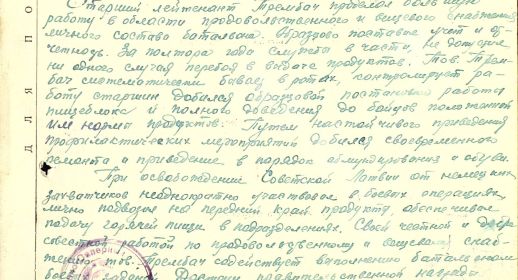 Старший лейтенант Трембач проделал большую
работу в области продовольственного и вещевого снабжения
личного состава батальона. Образцово поставив учет и от-
четность. За полтора года службы в части, не допущено
ни одного случая перебоя в выдаче продуктов. Тов. Трем-
бач систематически бывает в ротах, контролирует ра-
боту старшин добился образцовой постановки работы
пищеблока и полного доведения до бойцов положенной
им нормы продуктов. Путем настойчивого приведения
профилактических мероприятий добился своевременного
ремонта и приведение в порядок обмундирования и обуви.
При освобождение Советской Латвии от немецких
захватчиков неоднократно участвовал в боевых операциях
лично подвозил на передний край продукты, обеспечивал
подачу горячей пищи в подразделениях. Своей честной и добро-
совестной работой по продовольственному и вещевому снаб-
жению, тов. Трембач содействует выполнению батальоном
боевых заданий. Достоин правительственной награды
ДЛЯ ПО